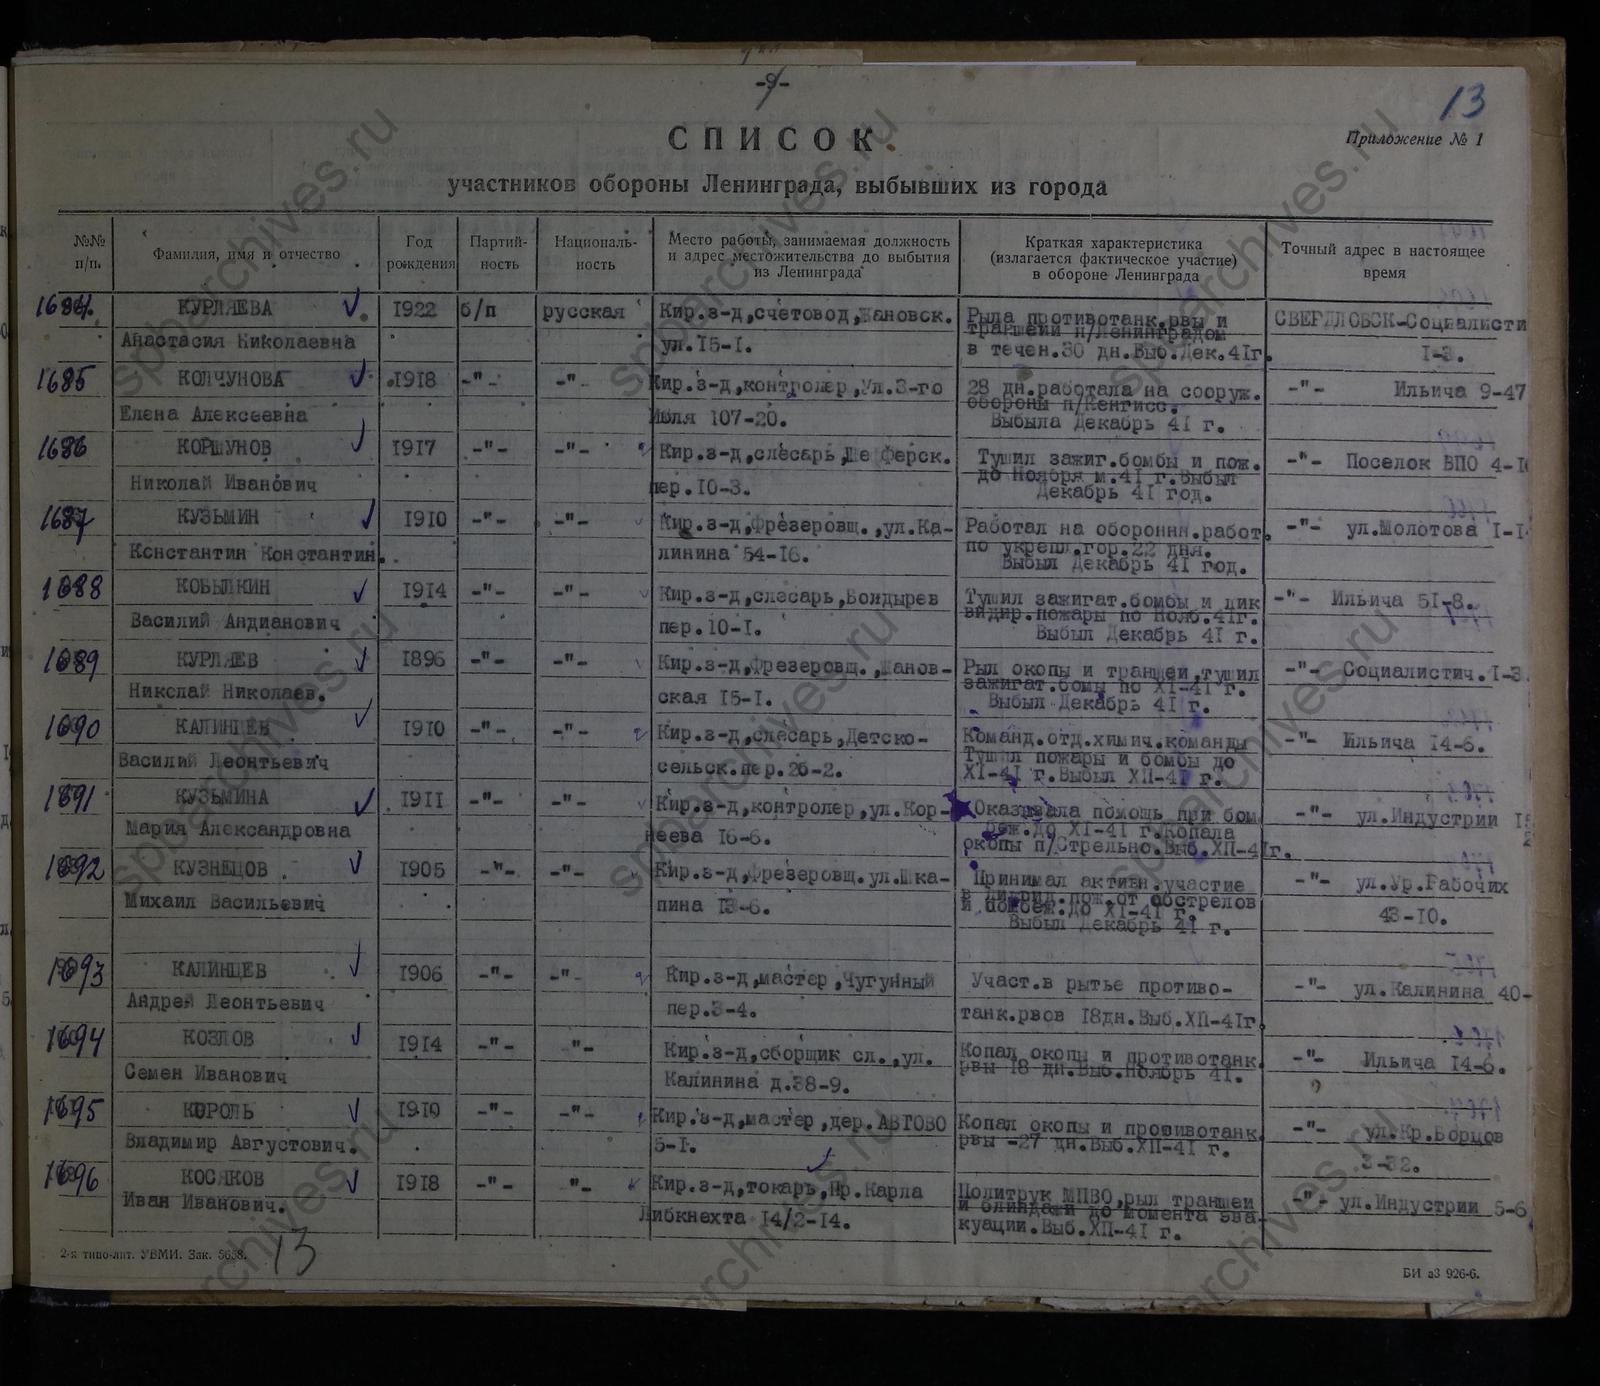 -9-
13
Приложение № 1
СПИСОК
участников обороны Ленинграда, выбывших из города
№№ п/п.
Фамилия, имя и отчество
Год рождения
Партий-ность
Националь-ность
Место работы, занимаемая должность и адрес местожительства до выбытия из Ленинграда
Краткая характеристика (излагается фактическое участие) в обороне Ленинграда
Точный адрес в настоящее время
1684. КУРЛЯЕВА 1922 б/п русская Кир.з-д,счетовод, Рыла противотанк.рвы и СВЕРДЛОВСК-Социалисти
Анастасия Николаевна ул.15-1. траншеи п/Ленинградом
в течен.30 дн.Выб.Дек.41г. 1-3.
1685 КОЛЧУНОВА 1918 -"- -"- Кир.з-д,контролер,Ул.3-го 28 дн.работала на сооруж. -"- Ильича 9-47
Елена Алексеевна Июля 107-20. обороны п/Кенгисс.
Выбыла Декабрь 41 г.
1686 КОРШУНОВ 1917 -"- -"- Кир.з-д,слесарь, Тушил зажиг.бомбы и пож. -"- Поселок ВПО
Николай Иванович пер.10-3. до Ноября м.41 г.Выбыл
Декабрь 41 год.
1687 КУЗЬМИН 1910 -"- -"- Кир.з-д,Фрезеровщ.,ул.Ка- Работал на оборонн.работ. -"- ул.Молотова
Константин Константин. линина 54-16. по укрепл.гор.22 дня.
Выбыл Декабрь 41 год.
1688 КОБЫЛКИН 1914 -"- -"- Кир.з-д,слесарь,Болдырев Тушил зажигат.бомбы и лик -"- Ильича 51-8.
Василий Андианович пер.10-1. видир.пожары по Нояб.41г.
Выбыл Декабрь 41 г.
1689 КУРЛЯЕВ 1896 -"- -"- Кир.з-д,Фрезеровщ., Рыл окопы и траншеи,тушил -"- Социалистич.1-3
Николай Николаев. ская 15-1. зажигат.бомы по XI-41 г.
Выбыл Декабрь 41 г.
1690 КАЛИНЦЕВ 1910 -"- -"- Кир.з-д,слесарь,Детско- Команд.отд.химич.команды -"- Ильича 14-6.
Василий Леонтьевич сельск.пер.26-2. Тушил пожары и бомбы до
XI-41 г.Выбыл ХП-41 г.
1691 КУЗЬМИНА 1911 -"- -"- Кир.з-д,контролер,ул.Кор- Оказывала помощь при бом -"- ул.Индустрии
Мария Александровна неева 16-6. беж.до XI-41 г.Копала
окопы п/Стрельно.Выб.ХП-41г.
1692 КУЗНЕЦОВ 1905 -"- -"- Кир.з-д,Фрезеровщ.ул.Шка- Принимал активн.участие -"- ул.Ур.Рабочих
Михаил Васильевич пина 13-6. пож.от обстрелов 43-10.
и бомбеж.до XI-41 г.
Выбыл Декабрь 41 г.
1693 КАЛИНЦЕВ 1906 -"- -"- Кир.з-д,мастер,Чугунный Участ.в рытье противо- -"- ул.Калинина 40-
Андрей Леонтьевич пер.3-4. танк.рвов 18дн.Выб.ХП-41г.
1694 КОЗЛОВ 1914 -"- "- Кир.з-д,сборщик сл.,ул. Копал окопы и противотанк. -"- Ильича 14-6.
Семен Иванович Калинина д.38-9. рвы 18 дн.Выб.Ноябрь 41.
1695 КОРОЛЬ 1910 -"- -"- Кир.з-д,мастер,дер.АВТОВО Копал окопы и противотанк. -"- ул.Кр.Борцов
Владимир Августович. 5-1. рвы -27 дн.Выб.ХП-41 г. 3-32.
1696 КОСЯКОВ 1918 -"- "- Кир.з-д,токарь,Пр.Карла Политрук МПВО,рыл траншеи -"- ул.Индустрии 5-6
Иван Иванович. Либкнехта 14/2-14. и блиндажи до момента эва
куации.Выб.ХП-41 г.
13
2-я типо-лит. УВМИ. Зак. 5658.
БИ а3 926-6.
sparchives.ru